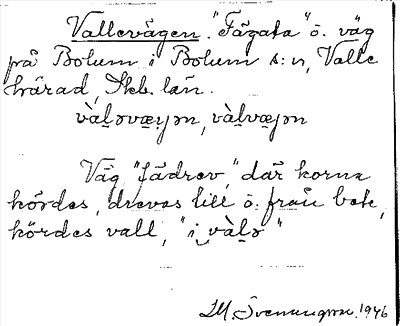 Vallevägen. "Fägata" ö. väg
på Bolum i Bolum s:n, Valle
härad, Skb. län.
vàḷəvæ̣yən, vàḷvæ̣yən
Väg "fädrev," där korna
kördes, drevos till o. från bete,
kördes vall, "i vàḷə"
M. Svenungson. 1946